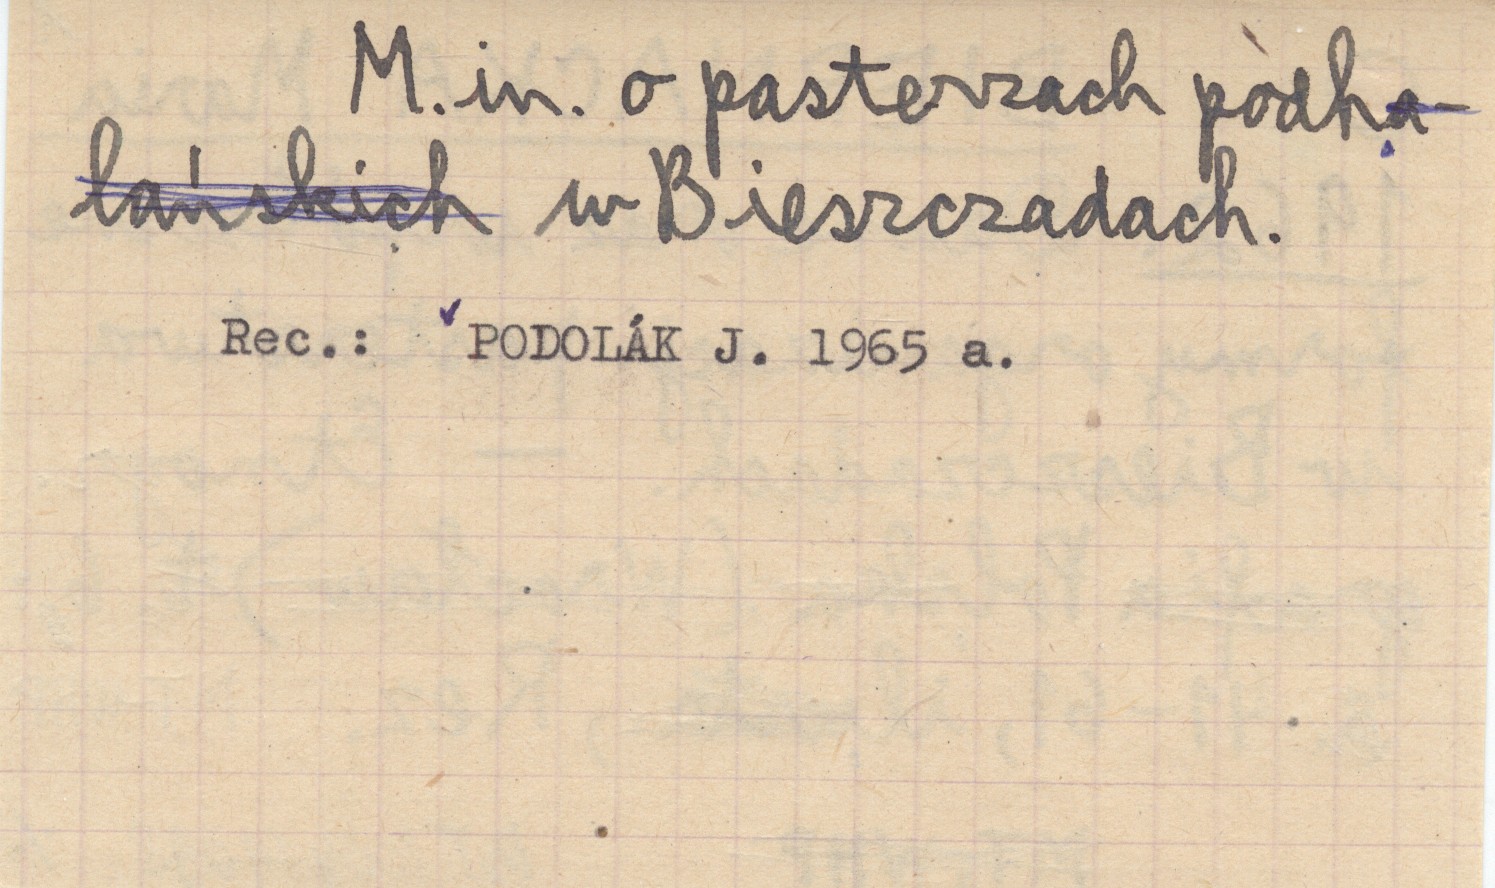 M. in. o pasterzach podha-
lańskich w Bieszczadach.
Rec.: PODOLÁK J. 1965 a.